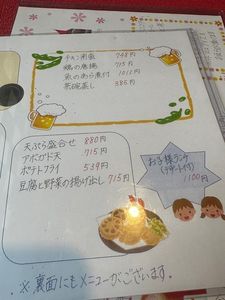 チキン南蛮 748円
鶏の唐揚 715円
魚のあら煮付 1011円
茶碗蒸し 385円
天ぷら盛合せ 880円
アボカド天 715円
ポテトフライ 539円
豆腐と野菜の揚げ出し 715円
お子様ランチ
(デザート付)
1100円
※裏面にもメニューがございます。